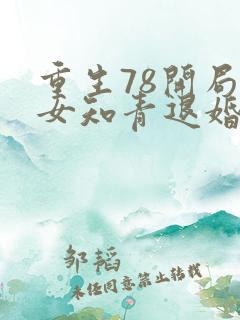 重生78開局
女知青退婚
邹韬
未经同意禁止转载